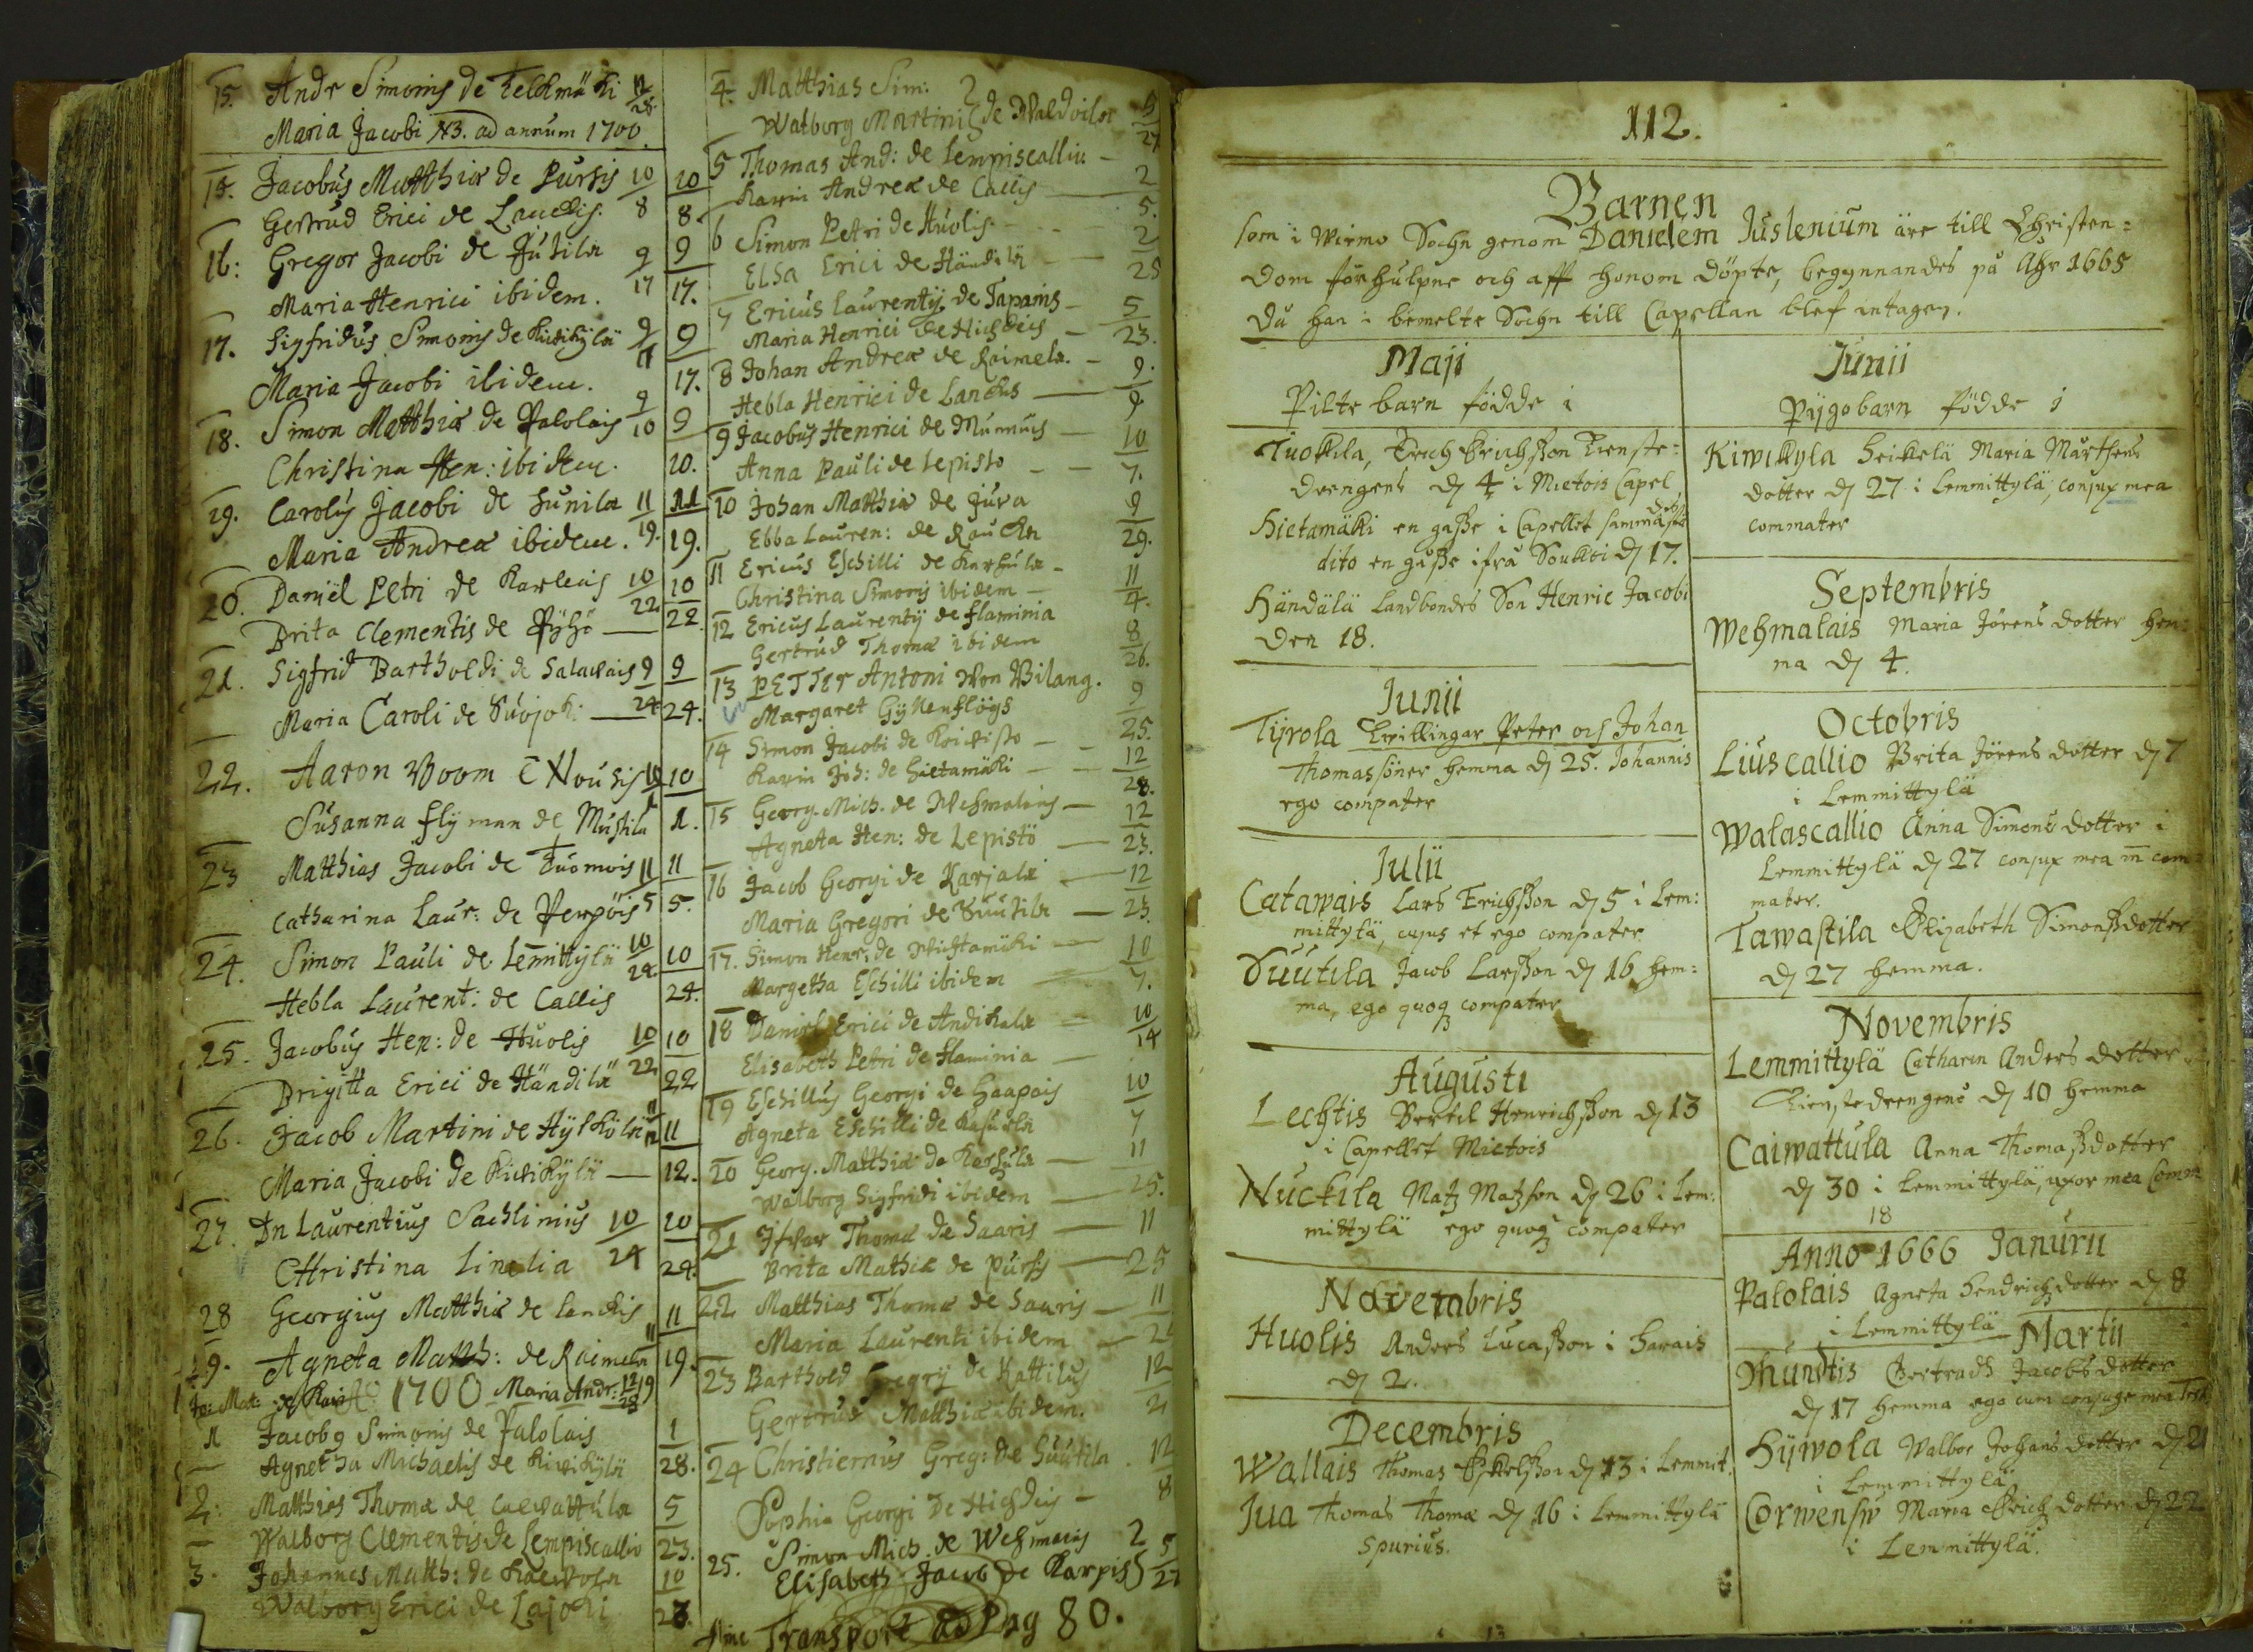 15. Andr Simonis de Telckmäki 12/28.
Maria Jacobi NB. ad annum 1700.
15. Jacobus Matthiæ de Pursis 10/8 10
Gertrud Erici de Lauckis. 8.
16: Gregor Jacobi de Jutila 9/17 9
Maria Henrici ibidem. 17.
17. Sigfridus Simonis de Kiwikylä 9/17 9
Maria Jacobi ibidem. 17.
18. Simon Matthiæ de Palolais 9/10 9
Christina Hen: ibidem. 10.
19. Carolus Jacobi de Junila 11/19. 11
Maria Andreæ ibidem. 19.
20. Daniel Petri de Karleais 10/22 10
Brita Clementis de Pyhö 22.
21. Sigfrid Bartholdi de Salawais 9/24 9
Maria Caroli de Suojoki 24.
22. Aaron Woom è Nousis 10/1 10
Susanna flyman de Mustila 1.
23 Matthias Jacobi de Tuomois 11/5 11
Catharina Laur: de Perpöis 5.
24. Simon Pauli de Lemmittylä 10/24 10
Hebla Laurent: de Callis 24.
25. Jacobus Hen: de Huolis 10/22 10
Brigitta Erici de Händilä 22
26. Jacob Martini de Hylkilä 11/12 11
Maria Jacobi de Kiwikylä 12.
27. Dn Laurentius Sachlinius 10/24 10
Christina Linelia 24.
28 Georgius Matthiæ de Lanckis 11
Agneta Matth: de Raimela 11/19 19.
Ao 1700 Maria Andr: 12/28
1 Jacobg Simonis de Palolais 1
Agnetha Michaelis de Kiwikylä 28.
2: Matthias Thomæ de Caiwattula 5
Walborg Clementis de Lempiscallio 23.
3. Johannes Matth: de Kaewola 10
Walborg Erici de Lajoki 28.
4. Matthias Sim:
Walborg Martini de Waldoila 5/27
5 Thomas And: de Lempiscallio 2
Karin Andreæ de Callis 5.
6 Simon Petri de Huolis. 2
Elsa Erici de Händilä 25
7 Ericus Laurentij de Tapanis 5
Maria Henrici de Hiehdeis 23.
8 Johan Andreæ de Raimela. 9.
Hebla Henrici de Lanckis 9
9 Jacobus Henrici de Mumuis 10
Anna Pauli de Lepistö 7.
10 Johan Matthiæ de Juva 9
Ebba Lauren: de Raukka 29.
11 Ericus Eschilli de Karhula 11
Christina Simonis ibidem 4.
12 Ericus Laurentij de Flaminia 8
Gertrud Thomæ ibidem 26.
13 Petter Antoni Von Bilang. 9
Margaret Gyllenflögs 25.
14 Simon Jacobi de Koiwisto 12
Karin Joh: de Hietamäki 28.
15 Georg. Mich. de Wehmalais 12
Agneta Hen: de Lepistö 23.
16 Jacob Georgi de Karjala 12
Maria Gregori de Suutila 23.
17. Simon Henr: de Wichtamäki 10
Margetha Eschilli ibidem 7.
18 Daniel Erici de Andikala 10
Elisabeth Petri de Flaminia 14
19 Eschillus Georgi de Haapais 10
Agneta Eschilli de Kasurla 7
20 Georg. Matthiæ de Karhula 11
Walborg Sigfridi ibidem 25.
21 Thomæ de Saaris 11
Brita Mathiæ de Pursis 25
22 Matthias Thomæ de Sauris 11
Maria Laurenti ibidem
23 Barthold Gregorij de Kattilus 12
Gertrud Matthiæ ibidem. 2
24 Christiernus Greg: de Suutila 12
Sophia Georgi de Hiehdeis 8
25. Simon Mich. de Wehmais 2
Elisabeth Jacob de Karpis 5/27
Hinc Transport ad Pag 80.
112.
Barnen
som i Wirmo Sochn genom Danielem Juslenium äre till Christen=
dom förhulpne och aff honom döpte, begynnandes på Åhr 1665
Då han i bemelte Sochn till Capellan blef intagen.
Maji
Piltebarn födde i
Tuokila, Erich Erichsson Tienste=
drengens d 4 i Mietois Capel
Hietamäki en gosse i Capellet samma
dito en gosse ifrå Soukki d 17.
Händälä Landbondes Son Henric Jacobi
den 18.
Junii
Tyrola Twillingar Peter och Johan
Thomassöner hemma d 25. Johannis
ego compater
Julii
Catawais Lars Erichsson d 5 i Lem:
mittylä, cujus et ego compater.
Suutila Jacob Larsson d 16 hem:
ma, ego quoq compater
Augusti
Lechtis Bertil Henrichsson d 13
i Capellet Mietois
Nuckila Matz Matzson d 26 i Lem:
mittylä ego quoq compater
Novembris
Huolis Anders Lucasson i Harais
d 2.
Decembris
Wallais Thomas Eskelsson d 13 i Lemmit.
Jua Thomas Thomæ d 16 i Lemmittylä
Spurius.
Junii
Pygobarn födde i
Kiwikyla Heikelä Maria Mårthens
dotter d 27 i Lemmittylä, conjux mea
commater
Septembris
Wehmalais Maria Jörens dotter hem:
ma d 4.
Octobris
Liuscallio Brita Jörens dotter d 7
i Lemmittylä
Walascallio Anna Simons dotter i
Lemmittylä d 27 conjux mea com=
mater.
Tawastila Elizabeth Simonsdotter
d 27 hemma.
Novembris
Lemmittylä Catharin Anders dotter
Tienstedrengens d 10 hemma
Caiwattula Anna Thomasdotter
d 30 i Lemmittylä, uxor mea Comm
18
Anno 1666 Januarii
Palolais Agneta Hendrichzdotter d 8
i Lemmittylä
Martii
Thundtis Gertrudh Jacobs dotter
d 17 hemma ego cum conjuge mea Test
Hywola Walbor Johans dotter d 21
i Lemmittylä
Corwensw Maria Erichzdotter d 22
i Lemmittylä.